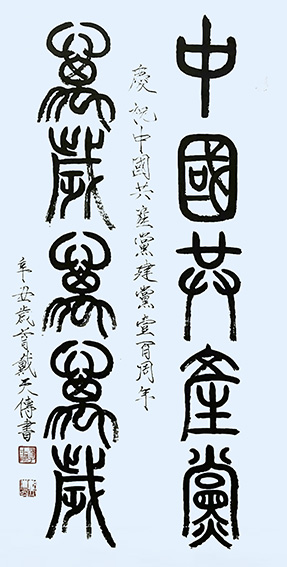 中國共產黨
萬歲萬萬歲
慶祝中國共產黨建黨壹百周年
辛丑歲首戴天傳書